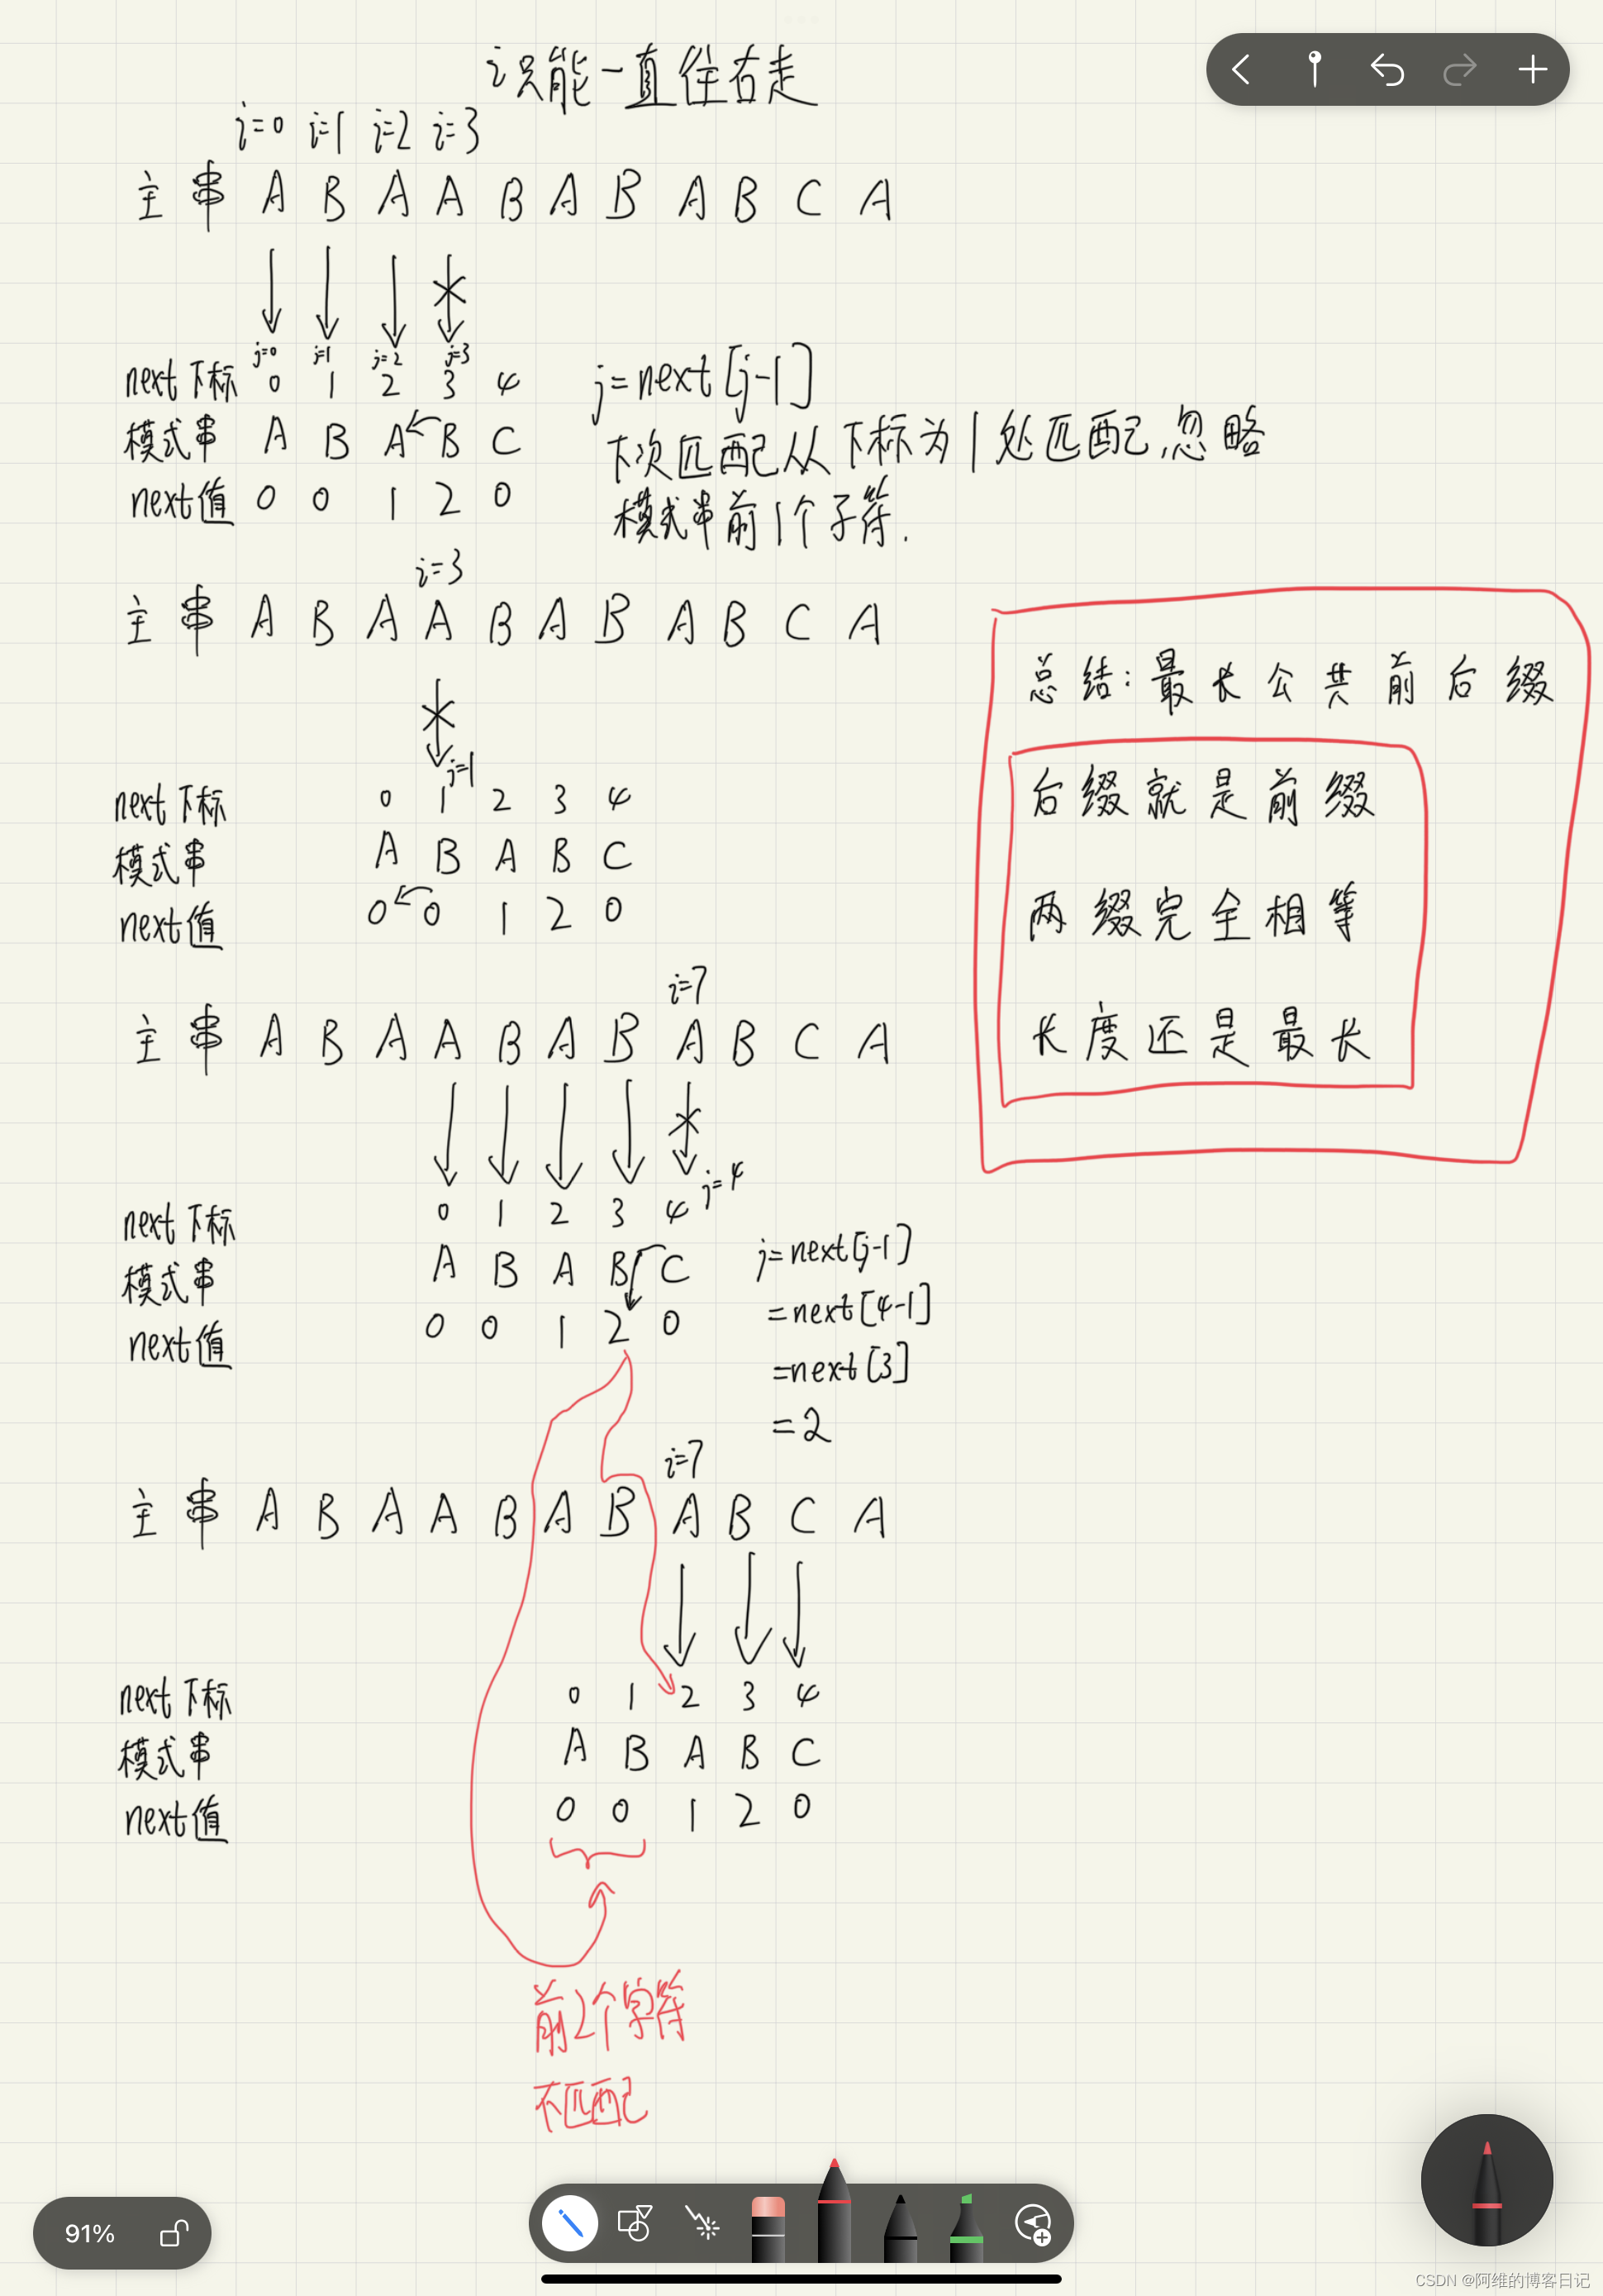 i只能一直往右走
i=0 i=1 i=2 i=3
主串 A B A A B A B A B C A
j=0 j=1 j=2 j=3
next下标 0 1 2 3 4
j=next[j-1]
模式串 A B A B C
下次匹配从下标为1处匹配,忽略
next值 0 0 1 2 0
模式串前1个子符.
i=3
主串 A B A A B A B A B C A
总结:最长公共前后缀
j=1
next下标 0 1 2 3 4
后缀就是前缀
模式串 A B A B C
next值 0 0 1 2 0
两缀完全相等
i=7
主串 A B A A B A B A B C A
长度还是最长
j=4
next下标 0 1 2 3 4
模式串 A B A B C
j=next[j-1]
next值 0 0 1 2 0
=next[4-1]
=next[3]
=2
i=7
主串 A B A A B A B A B C A
next下标 0 1 2 3 4
模式串 A B A B C
next值 0 0 1 2 0
前2个字符
不匹配
91%
CSDN @阿维的博客日记